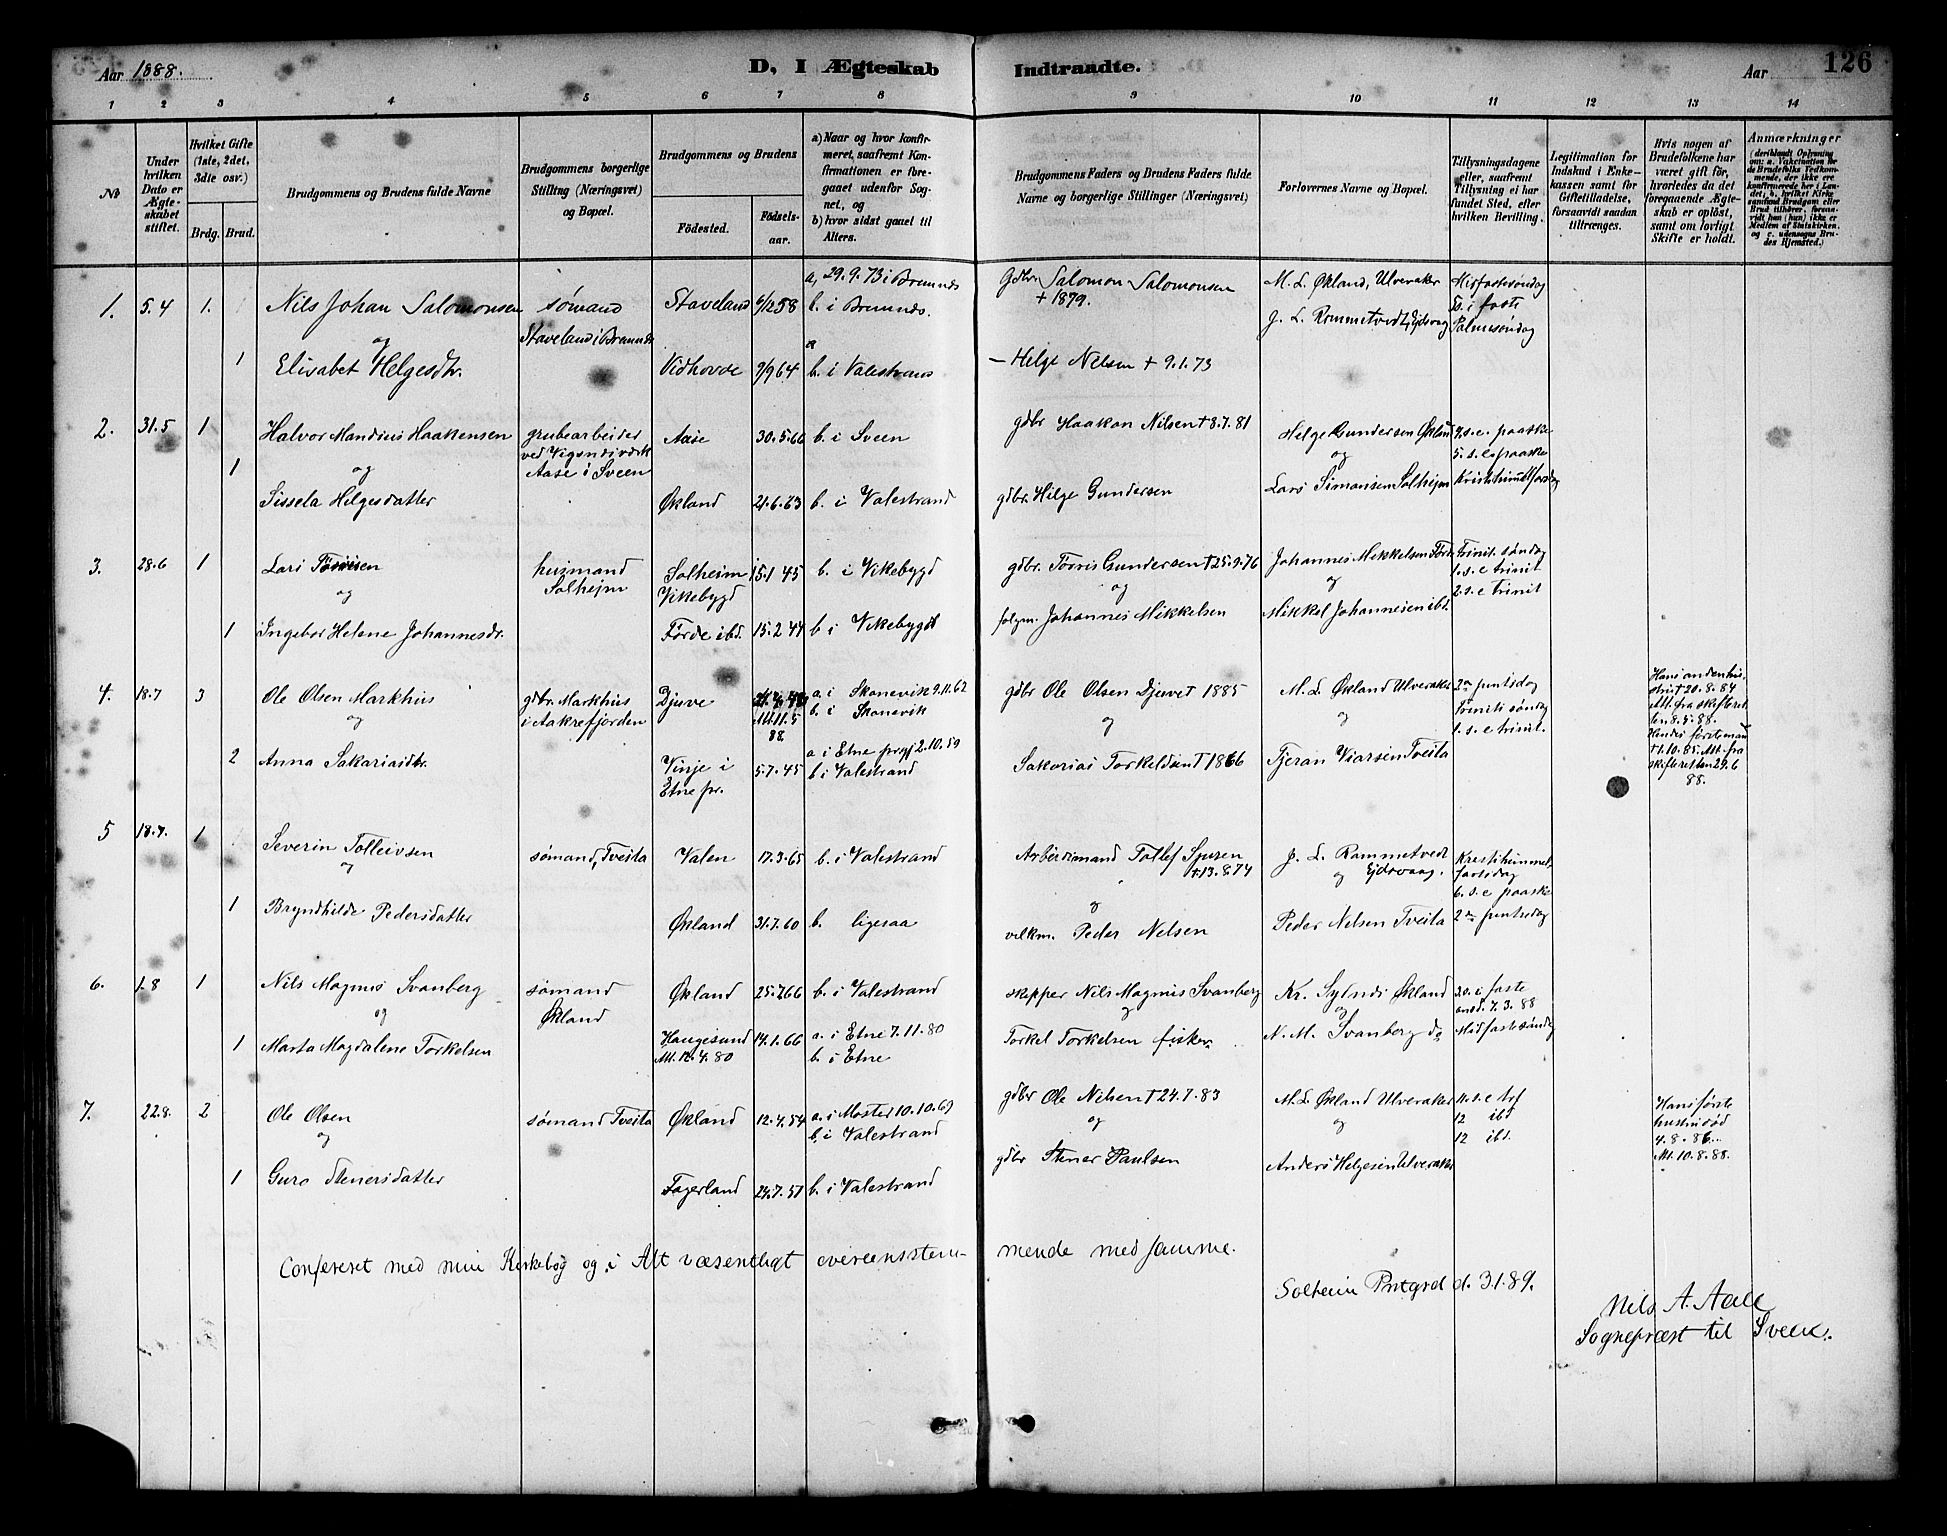 Aar 1888.
D, I Ægteskab Indtraadte.
Aar 126
1 2 3 4 5 6 7 8 9 10 11 12 13 14
No
Under hvilken Dato er Ægteskabet stiftet.
Hvilket Gifte (1ste, 2det, 3die osv.)
Brdg. Brud.
Brudgommens og Brudens fulde Navne
Brudgommens borgerlige Stilling (Næringsvei) og Bopæl.
Brudgommens og Brudens
Födested. Födsels-aar.
a) Naar og hvor konfirmeret, saafremt Konfirmationen er foregaaet udenfor Sognet, og
b) hvor sidst gaaet til Alters.
Brudgommens Faders og Brudens Faders fulde Navne og borgerlige Stillinger (Næringsvei)
Forlovernes Navne og Bopæl.
Tillysningsdagene eller, saafremt Tillysning ei har fundet Sted, efter hvilken Bevilling.
Legitimation for Indskud i Enkekassen samt for Giftetilladelse, forsaavidt saadan tiltrænges.
Hvis nogen af Brudefolkene har været gift før, hvorledes da det foregaaende Ægteskab er oplöst, samt om lovligt Skifte er holdt.
Anmærkninger (deriblandt Oplysning om: a. Vakcination for de Brudefolks Vedkommende, der ikke ere konfirmerede her i Landet, b. hvilket Kirkesamfund Brudgom eller Brud tilhörer, forsaavidt han (hun) ikke er Medlem af Statskirken, og c. udensogns Brudes Hjemsted.)
1. 5.4 1. Nils Johan Salomonsen sømand Staveland 6/12 58 a, 29.9.73 i Bremnds gdbr Salomon Salomonsen M. L. Økland, Ulveraker Midfastesøndag
og Staveland i Bremnds b. i Bremnds. + 1879. J. L. Rommetvedt, Ejdsvag 5s. i faste
Palmesøndag
1 Elisabet Helgesdtr. Vidhovde 9/9 64 a b. i Valestrand — Helge Nilsen + 9.1.73
2. 31.5 1 Halvor Mandius Haakensen grubearbeider Aase 30.5.66 b. i Sveen gdbr Haakon Nilsen + 3.7.81 Helge Gundersen Øklan 4.s.e. paaske
ved Vigsnesværk og 5.s.e. paaske
1 og Aase i Sveen Lars Simonsen Solhejm Kristihimmelfarsdag
Sissela Helgesdatter Økland 21.6.63 b. i Valestrand gdbr. Helge Gundersen
3. 28.6 1 Lars Toresen husmand Solheim 15.1 45 b. i Vikebygd gdbr. Tooris Gundersen + 25.9.76 Johannes Mikkelsen Førde Trinit. søndag
og Solhejm Vikebygd og og 1. s. e trinit
2. s. e trinit
1 Ingebor Helene Johannesdr. Førde ibd. 15.2 44 b i Vikebygd Johannes Mikkelsen Mikkel Johannesen ibd.
4. 18.7 3 Ole Olsen Markhus gdbr. Markhus Djuve a. i Skonevik 9.11.62 gdbr Ole Olsen Djuve + 1885 M. L. Økland Ulveraker 2en pintsdag
og i Aakrefjorden Att 11.5 88. b. i Skonevik og og Triniti søndag
1. s. e trinit.
Hans anden hustru + 20.8.84 Att. fra skifteretten 8.5.88.
2 Anna Sakariasdtr. Vinje i Etne pr. 5.7.45 a i Etne prgj 2.10.59 Sakarias Torkeldsen + 1866 Tjeran Viarsen Tveita
b i Valestrand
Hendes første man + 1.10.85. Att. fra skifteretten 29.6 88.
5 18.7. 1 Severin Tolleivsen sømand, Tveita Valen 17.3.65 b. i Valestrand Arbeidsmand Tollef Sjursen J. L. Rommetvedt Kristihimmelfartsdag
og + 13.8.74 og Ejdsvaag. 6. s. e paaske
1 Bryndhilde Pedersdatter Økland 31.7.60 b. ligesaa og Peder Nelsen Peder Nelsen Tveita 2en pintsdag
6. 1.8 1 Nils Magnus Svanberg sømand Økland 25.7.66 b. i Valestrand skipper Nils Magnus Svanberg Kr. Sylnes Økland 3.s. i faste
og Økland og og 7.3.88
1 Marta Magdalene Torkelsen Haugesund 14.1.66 a. i Etne 7.11.80 Torkel Torkelsen fisker N. M. Svanberg do Midfastsøndag
Att. 12.4.80 b. i Etne
7. 22.8. 2 Ole Olsen sømand Tveita Økland 12.4.54 a. i Moster 10.10.69 gdbr Ole Nilsen + 24.7.83 M. L. Økland Ulveraker 11. s. e tref
og b. i Valestrand og og 12 ibd
12 ibd.
Hans første hustru død 4.8.86. Att. 10.8.88.
1 Guro Stenersdatter Fagerland 24.7.57 b. i Valestrand gdbr Stener Paulsen Anders Helgesen Ulveraker
Confereret med min Kirkebog og i Alt væsentligt overeensstemmende med samme.
Solheim Prstgrd d. 3.1.89.
Nils A. Aall
Sognepræst til Sveen.